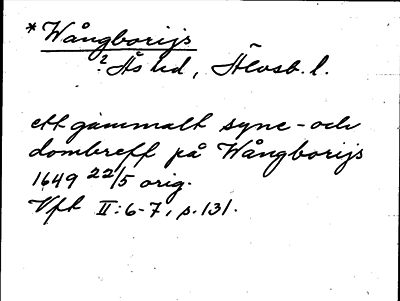 *Wångborijs
? Ås hd, Älvsb. l.
ett gammalt syne- och
dombreff på Wångborijs
1649 22/5 orig.
Vft II:6-7, s. 131.